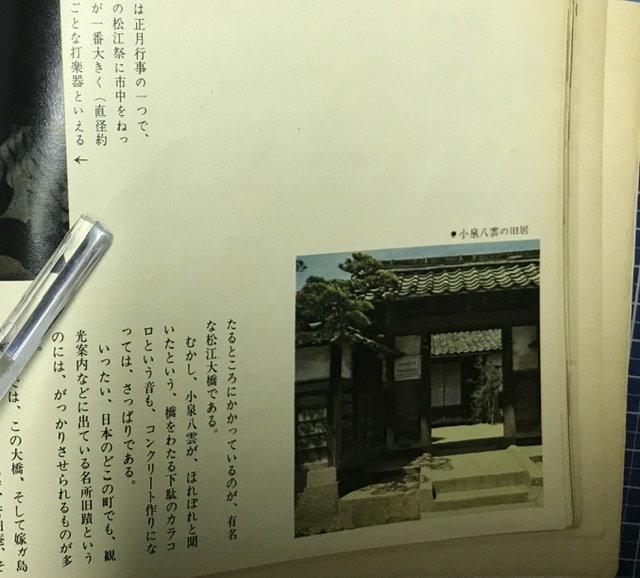 ●小泉八雲の旧居
は正月行事の一つで、
の松江祭に市中をねっ
が一番大きく（直径約
ごとな打楽器といえる
←
たるところにかかっているのが、有名
な松江大橋である。
むかし、小泉八雲が、ほれぼれと聞
いたという、橋をわたる下駄のカラコ
ロという音も、コンクリート作りにな
っては、さっぱりである。
いったい、日本のどこの町でも、観
光案内などに出ている名所旧蹟という
のには、がっかりさせられるものが多
は、この大橋、そして嫁ガ島